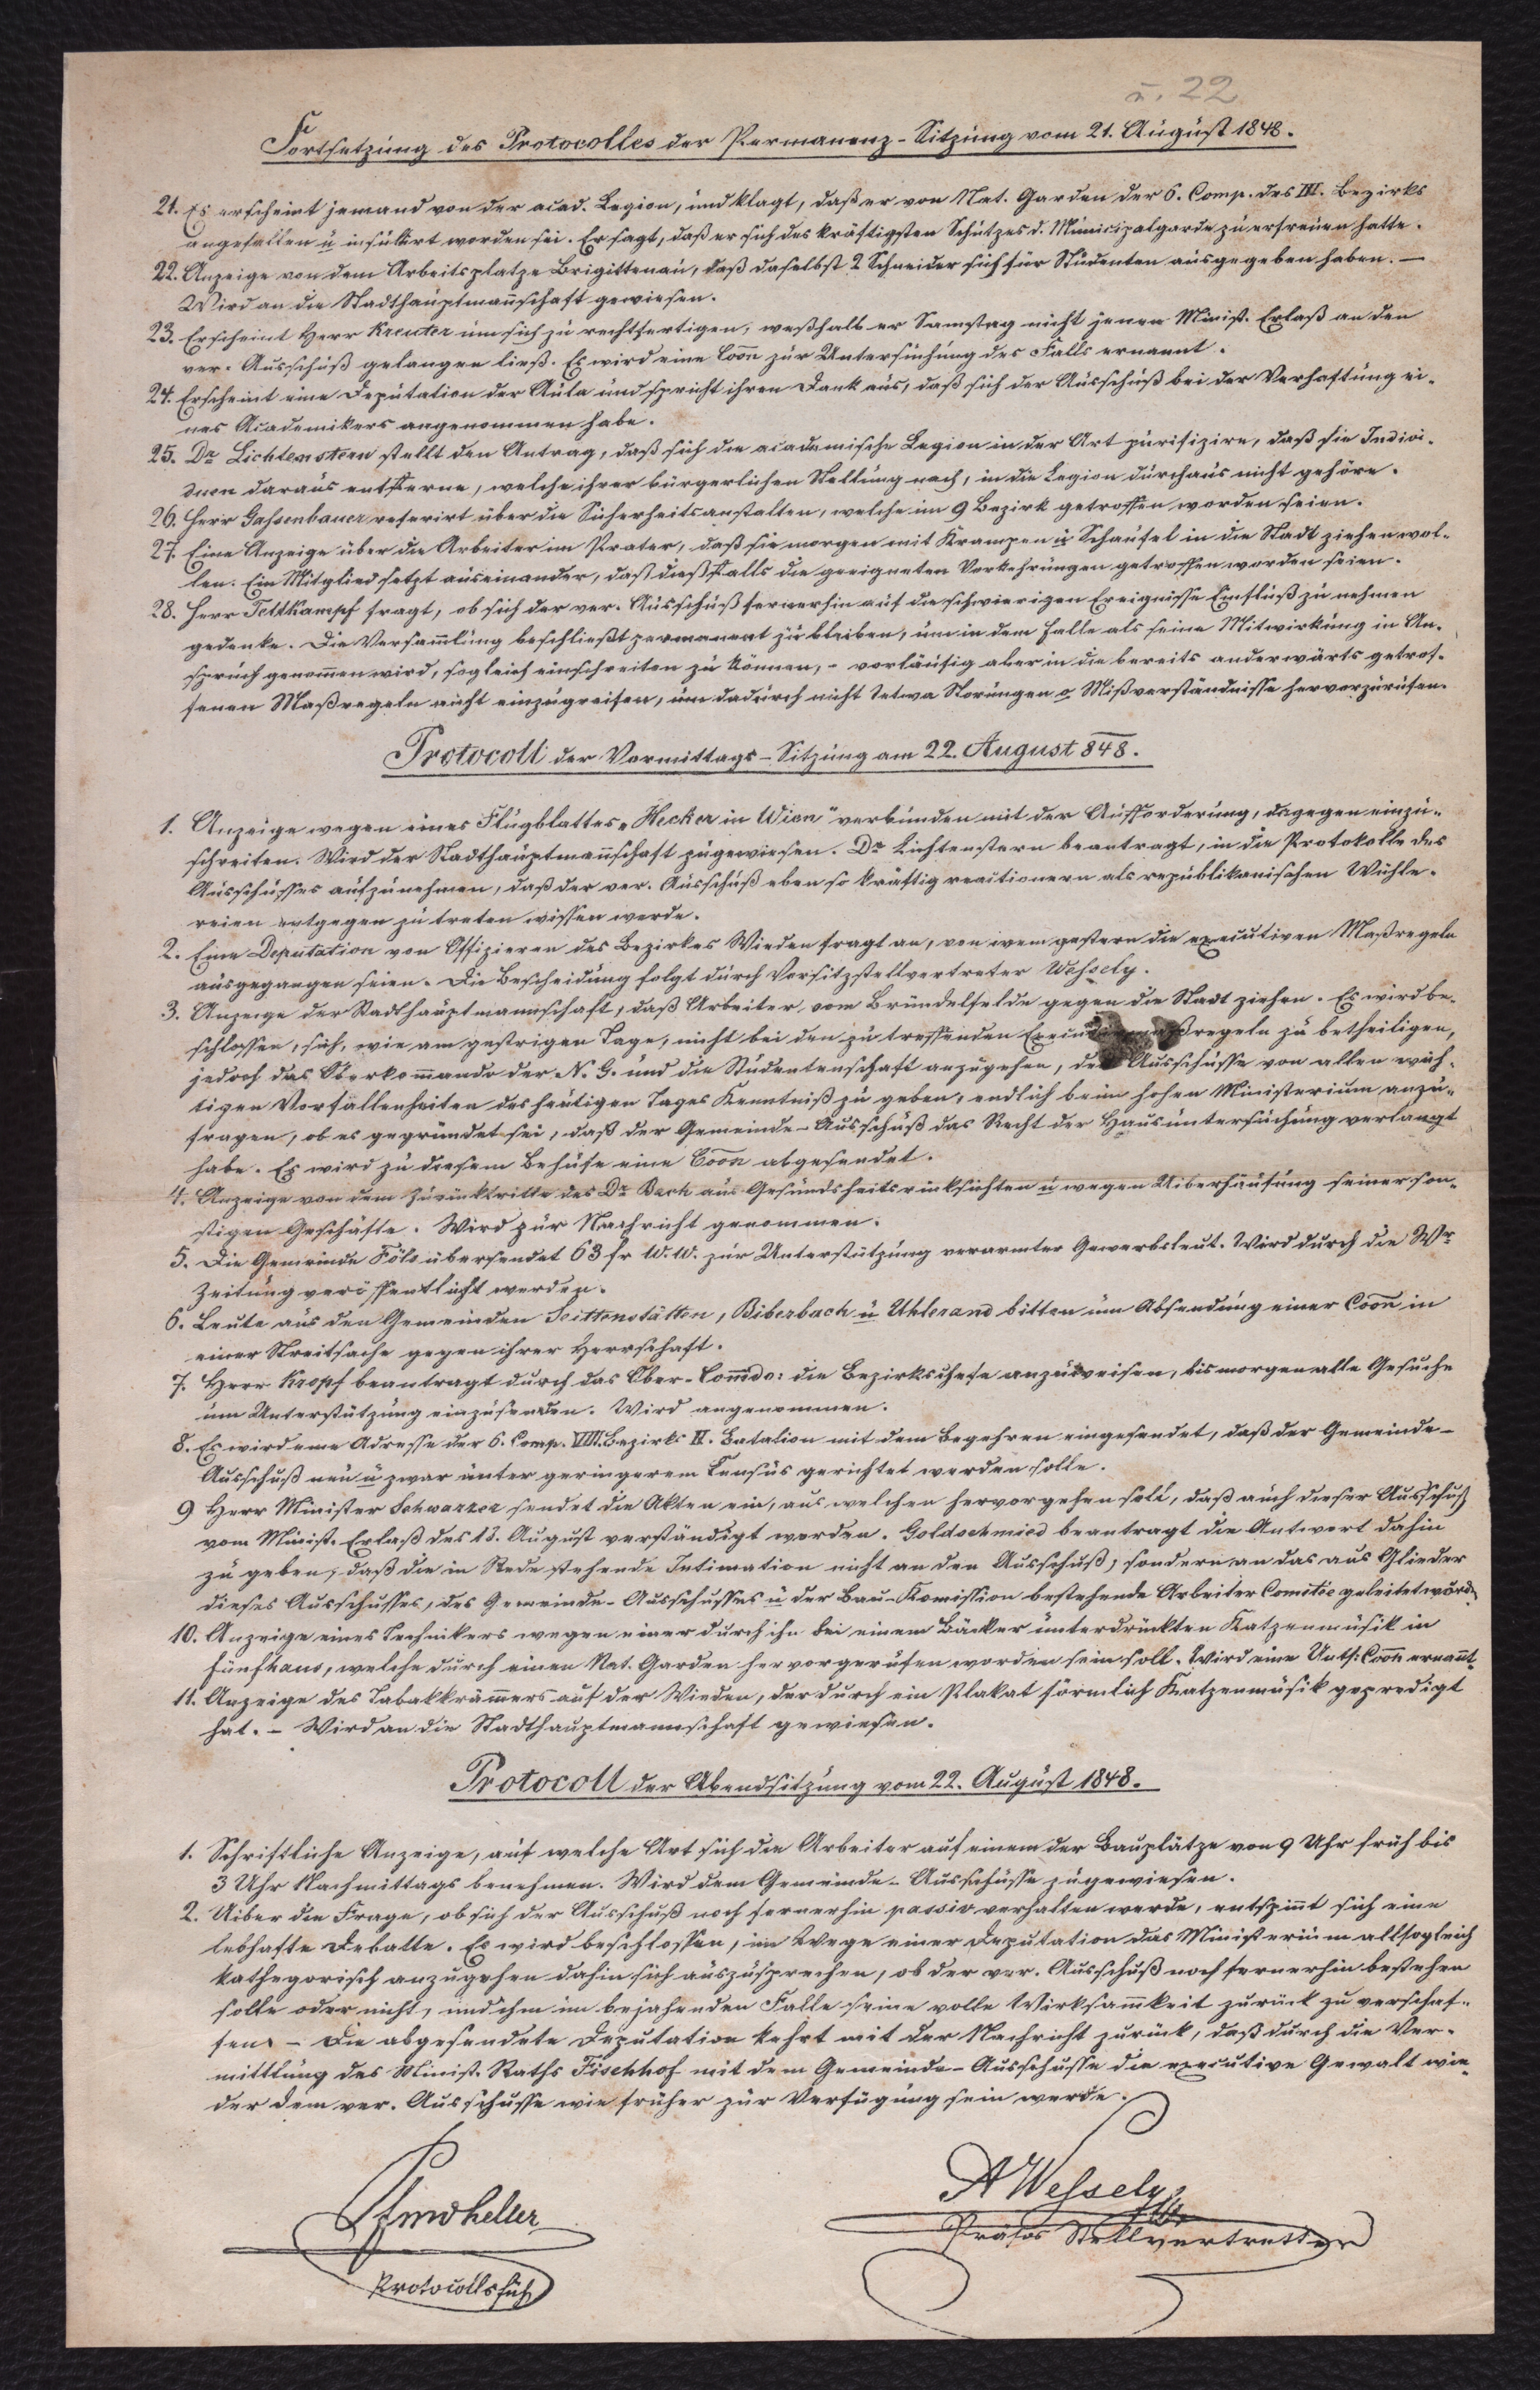 u. 22
Fortsetzung des Protocolles der Permanenz-Sitzung vom 21. August 1848.
21. Es erscheint jemand von der acad. Legion, und klagt, daß er von Nat. Garden der 6. Comp. des III. Bezirks
angefallen u insultirt worden sei. Er sagt, daß er sich des kräftigsten Schutzes d. Municipalgarde zu erfreuen hatte.
22. Anzeige von dem Arbeitsplatze Brigittenau, daß daselbst 2 Schneider sich für Studenten ausgegeben haben. —
Wird an die Stadthauptmannschaft gewiesen.
23. Erscheint Herr Kreuter um sich zu rechtfertigen, weßhalb er Samstag nicht jenen Minist. Erlaß an den
ver. Ausschuß gelangen ließ. Es wird eine Coon zur Untersuchung des Falls ernannt.
24. Erscheint eine Deputation der Aula und spricht ihren Dank aus, daß sich der Ausschuß bei der Verhaftung ei-
nes Academikers angenommen habe.
25. Dr Lichtenstern stellt den Antrag, daß sich die academische Legion in der Art purifizire, daß sie Indivi-
duen daraus entferne, welche ihrer bürgerlichen Stellung nach, in die Legion durchaus nicht gehöre.
26. Herr Gassenbauer referirt über die Sicherheitsanstalten, welche im 9 Bezirk getroffen worden seien.
27. Eine Anzeige über die Arbeiter im Prater, daß sie morgen mit Krampen u Schaufel in die Stadt ziehen wol-
len. Ein Mitglied setzt auseinander, daß dießfalls die geeigneten Vorkehrungen getroffen worden seien.
28. Herr Tettkampf fragt, ob sich der ver. Ausschuß fernerhin auf die schwierigen Ereignisse Einfluß zu nehmen
gedenke. Die Versamlung beschließt permanent zu bleiben, um in dem Falle als seine Mitwirkung in An-
spruch genommen wird, sogleich einschreiten zu können, - vorläufig aber in die bereits anderwärts getrof-
fenen Maßregeln nicht einzugreifen, um dadurch nicht etwa Störungen o Mißverständnisse hervorzurufen.
Protocoll der Vormittags-Sitzung am 22. August 848.
1. Anzeige wegen eines Flugblattes "Hecker in Wien" verbunden mit der Aufforderung, dagegen einzu-
schreiten. Wird der Stadthauptmannschaft zugewiesen. Dr Lichtenstern beantragt, in die Protokolle des
Ausschusses aufzunehmen, daß der ver. Ausschuß eben so kräftig reactionern als republikanischen Wühle-
reien entgegen zu treten wissen werde.
2. Eine Deputation von Offizieren des Bezirkes Wieden fragt an, von wem gestern die executiven Maßregeln
ausgegangen seien. Die Bescheidung folgt durch Vorsitzstellvertreter Wessely.
3. Anzeige der Stadthauptmannschaft, daß Arbeiter vom Bründelfelde gegen die Stadt ziehen. Es wird be-
schlossen, sich, wie am gestrigen Tage, nicht bei den zu treffenden maßregeln zu betheiligen,
jedoch das Oberkommando der N. G. und die Studentenschaft anzugehen, Ausschusse von allen wich-
tigen Vorfallenheiten des heutigen Tages Kenntniß zu geben, endlich beim hohen Ministerium anzu-
fragen, ob es gegründet sei, daß der Gemeinde-Ausschuß das Recht der Hausuntersuchung verlangt
habe. Es wird zu diesem Behufe eine Coon abgesendet.
4. Anzeige von dem Zurücktritte des Dr Bach aus Gesundheitsrücksichten u wegen Uiberhäufung seiner son-
stigen Geschäfte. Wird zur Nachricht genommen.
5. Die Gemeinde Föls übersendet 63 fr W.W. zur Unterstützung verarmter Gewerbsleut. Wird durch die Wr
Zeitung veröffentlicht werden.
6. Leute aus den Gemeinden Seittenstätten, Biberbach u Uhlerand bitten um Absendung einer Coon in
einer Streitsache gegen ihrer Herrschaft.
7. Herr Kropf beantragt durch das Ober-Commdo: die Bezirkschefe anzuweisen, bis morgen alle Gesuche
um Unterstützung einzusenden. Wird angenommen.
8. Es wird eine Adresse der 6. Comp. VIII. Bezirks II. Batalion mit dem Begehren eingesendet, daß der Gemeinde-
Ausschuß neu u zwar unter geringerem Census gerichtet werden solle.
9 Herr Minister Schwarzer sendet die Akten ein, aus welchen hervorgehen soll, daß auch dieser Ausschuß
vom Minist. Erlaß des 18. August verständigt worden. Goldschmied beantragt die Antwort dahin
zu geben, daß die in Rede stehende Intimation nicht an den Ausschuß, sondern an das aus Glieder
dieses Ausschusses, des Gemeinde-Ausschusses u der Bau-Komission bestehende Arbeiter Comitée geleitet würde
10. Anzeige eines Technikers wegen einer durch ihn bei einem Bäcker unterdrückten Katzenmusik in
Fünfhaus, welche durch einen Nat. Garden hervorgerufen worden sein soll. Wird eine Unts: Coon ernannt.
11. Anzeige des Tabakkrämers auf der Wieden, der durch ein Plakat förmlich Katzenmusik gepredigt
hat. - Wird an die Stadthauptmannschaft gewiesen.
Protocoll der Abendsitzung vom 22. August 1848.
1. Schriftliche Anzeige, auf welche Art sich die Arbeiter auf einem der Bauplätze von 9 Uhr früh bis
3 Uhr Nachmittags benehmen. Wird dem Gemeinde-Ausschusse zugewiesen.
2. Uiber die Frage, ob sich der Ausschuß noch fernerhin passiv verhalten werde, entspinnt sich eine
lebhafte Debatte. Es wird beschlossen, im Wege einer Deputation das Ministerium allsogleich
kathegorisch anzugehen dahin sich auszusprechen, ob der ver. Ausschuß noch fernerhin bestehen
solle oder nicht, und ihm im bejahenden Falle seine volle Wirksamkeit zurück zu verschaf-
fen. - Die abgesendete Deputation kehrt mit der Nachricht zurück, daß durch die Ver-
mittlung des Minist. Raths Fischhof mit dem Gemeinde-Ausschusse die executive Gewalt wie-
der dem ver. Ausschusse wie früher zur Verfügung sein werde.
A Wessely
Präses Stellvertretter
Protocollsfüh